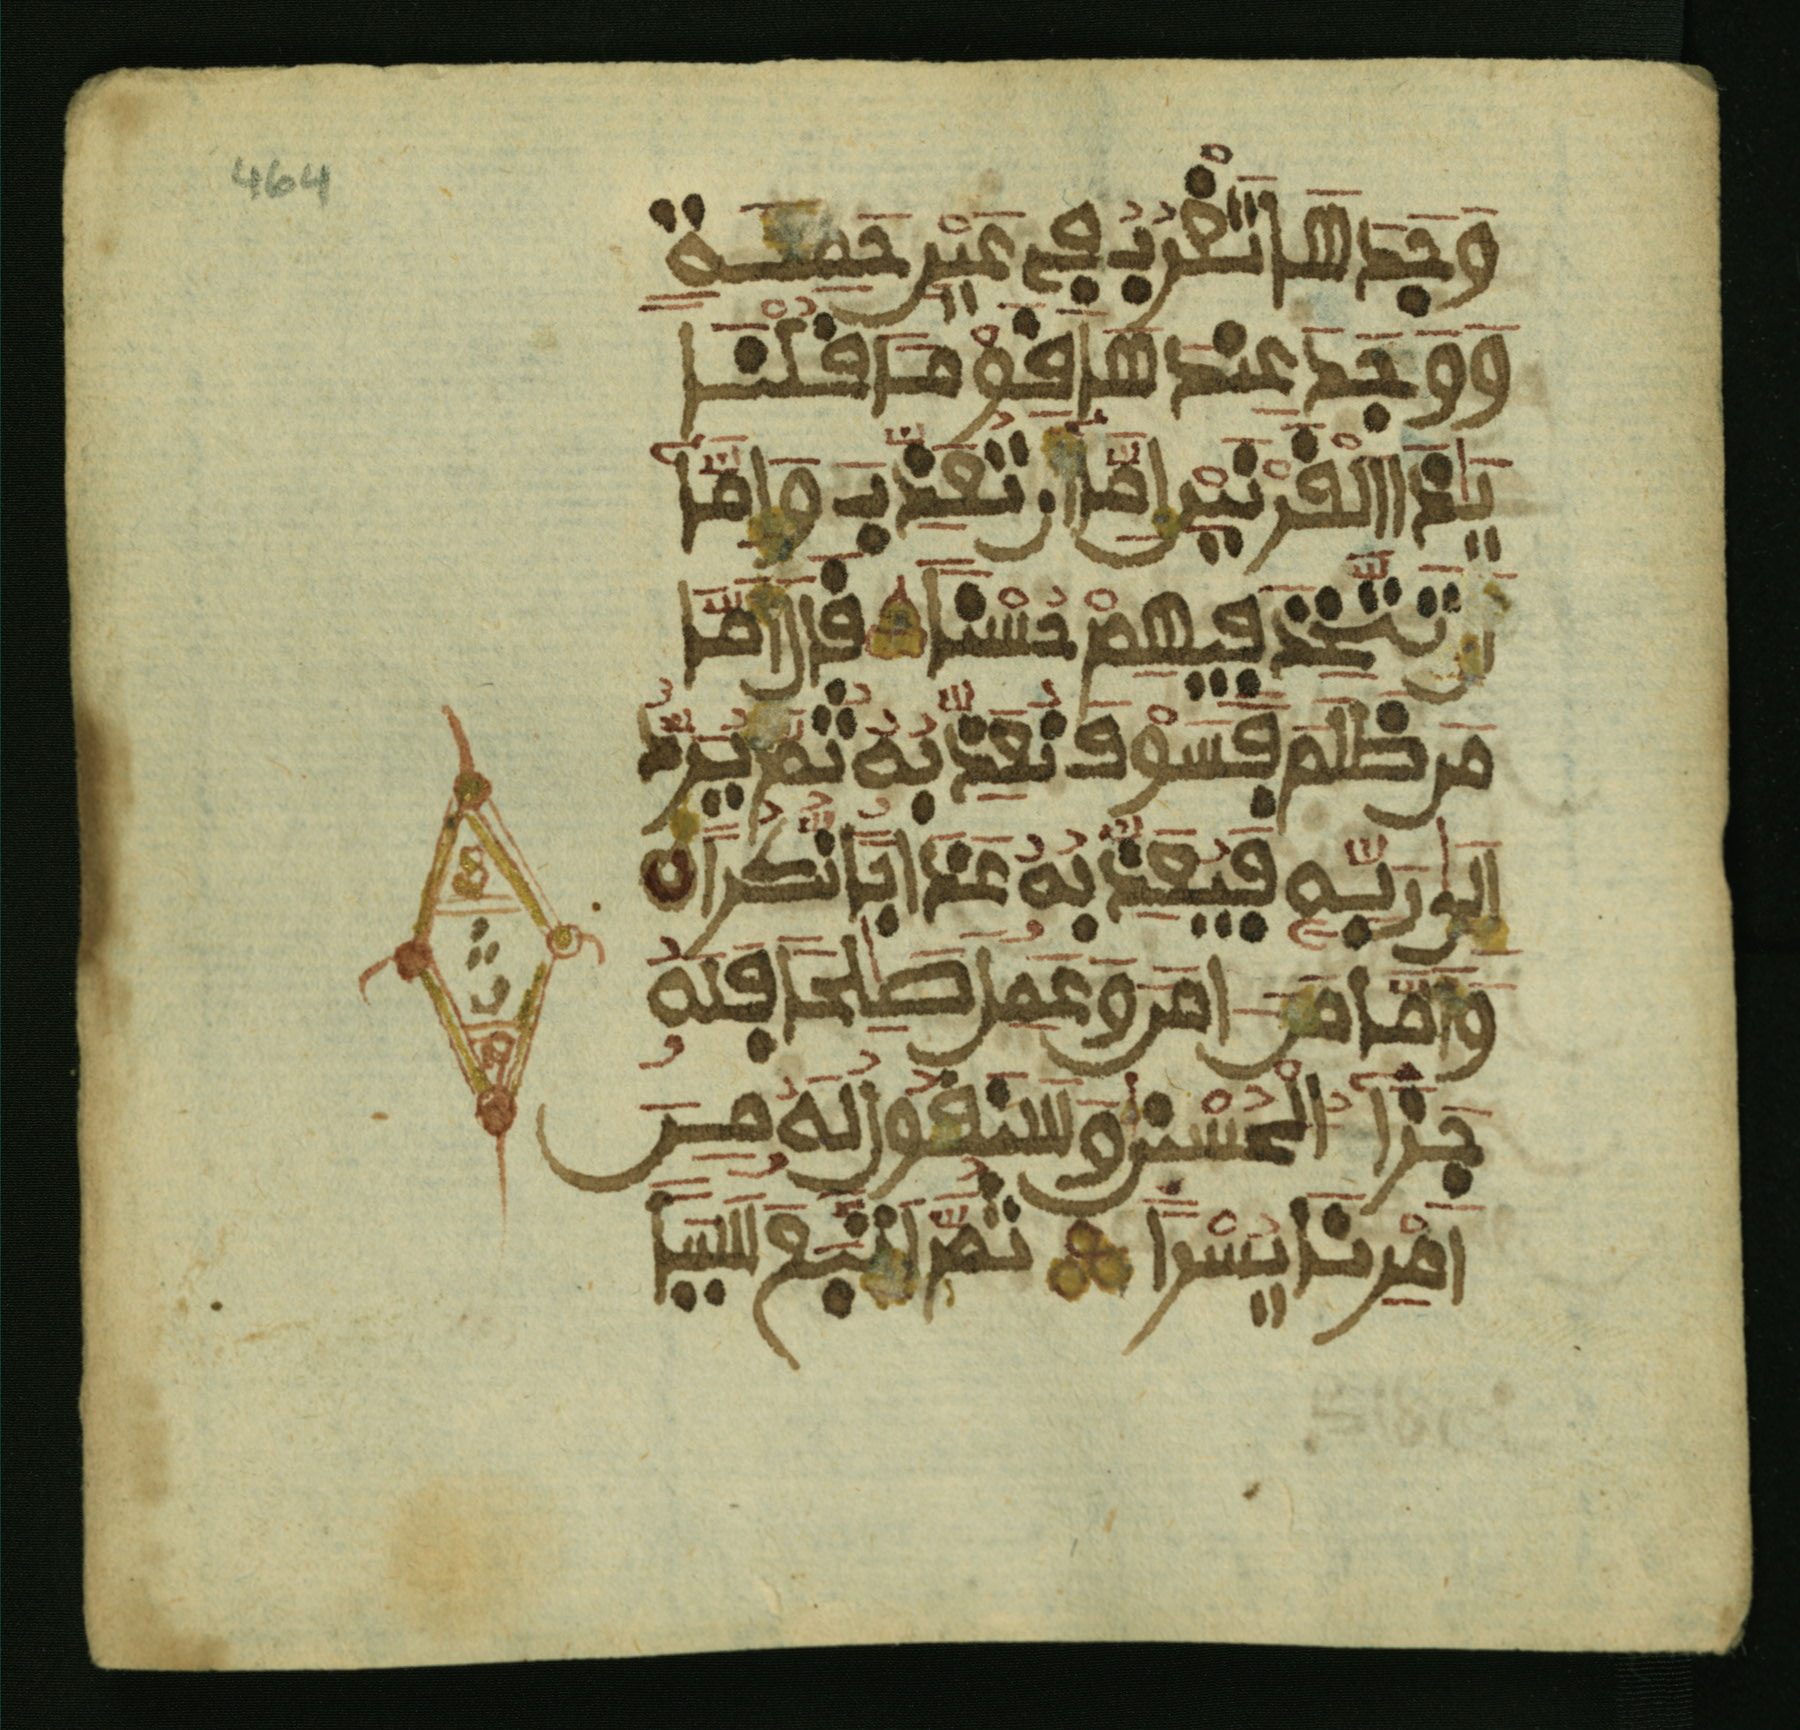 464
وَجَدَهَا تَغْرُبُ فِي عَيْنٍ حَمِئَةٍ
وَوَجَدَ عِندَهَا قَوْمًا قُلْنَا
يَٰذَا الْقَرْنَيْنِ إِمَّا أَن تُعَذِّبَ وَإِمَّا
أَن تَتَّخِذَ فِيهِمْ حُسْنًا قَالَ أَمَّا
مَن ظَلَمَ فَسَوْفَ نُعَذِّبُهُ ثُمَّ يُرَدُّ
إِلَىٰ رَبِّهِ فَيُعَذِّبُهُ عَذَابًا نُّكُرًا
وَأَمَّا مَنْ ءَامَنَ وَعَمِلَ صَٰلِحًا فَلَهُ
جَزَآءُ الْحُسْنَىٰ وَسَنَقُولُ لَهُ مِنْ
أَمْرِنَا يُسْرًا ثُمَّ اتَّبَعَ سَبَبًا